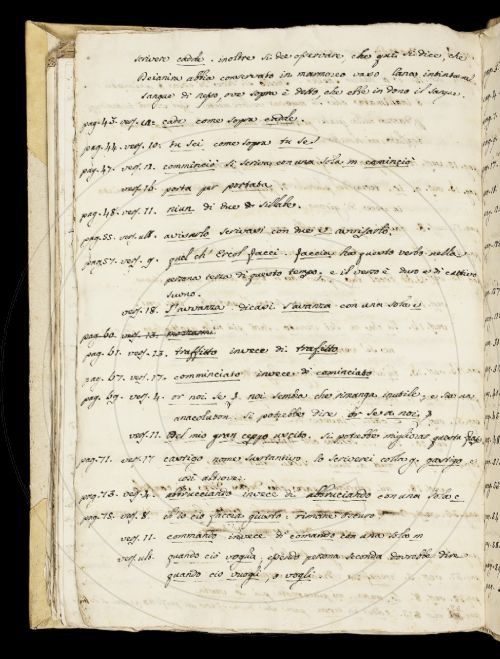 scrivere cadde. inoltre si dee osservare, che quì si dice, che
Deianira abbia conservato in marmoreo vaso lana intinta nel
sangue di Nesso, ove sopra è detto che ebbe in dono il sangue.
pag. 43. vers. 12. cade come sopra cadde.
pag. 44. vers. 10. tu sei come sopra tu se
pag. 47. vers. 12. commincio si scriva con una sola m comincio
vers. 16. porta per portata
pag. 48. vers. 11. niun di due sillabe.
pag. 55. vers. ult. avisarlo scrivasi con due v avvisarlo.
pag. 57. vers. 9. quel ch' Ercol facci. faccia ha questo verbo nella
persona terza di questo tempo. e il verso è duro e di cattivo
suono.
vers. 18. s'avvanza dicasi s'avanza con una sola v
pag. 60. vers. 13.
pag. 61. vers. 23. traffitto invece di trafitto
pag. 67. vers. 17. comminciato invece di cominciato
pag. 69. vers. 4. or noi se noi sembra che rimanga inutile, e sia un
anacoluton. si potrebbe dire or se a noi,
vers. 11. Del mio gran ceppo uscito. si potrebbe migliorar questa
pag. 71. vers. 17 castigo nome sustantivo. lo scriverei colla g. gastigo, e
così altrove.
pag. 73. vers. 4. abbrucciando invece di abbruciando con una sola c
pag. 75. vers. 8. ciò faccia rimane oscuro
vers. 11. commando invece di comando con una sola m
vers. ult. quando ciò voglia, essendo persona seconda dovrebbe dire
quando ciò vuogli, o vogli.